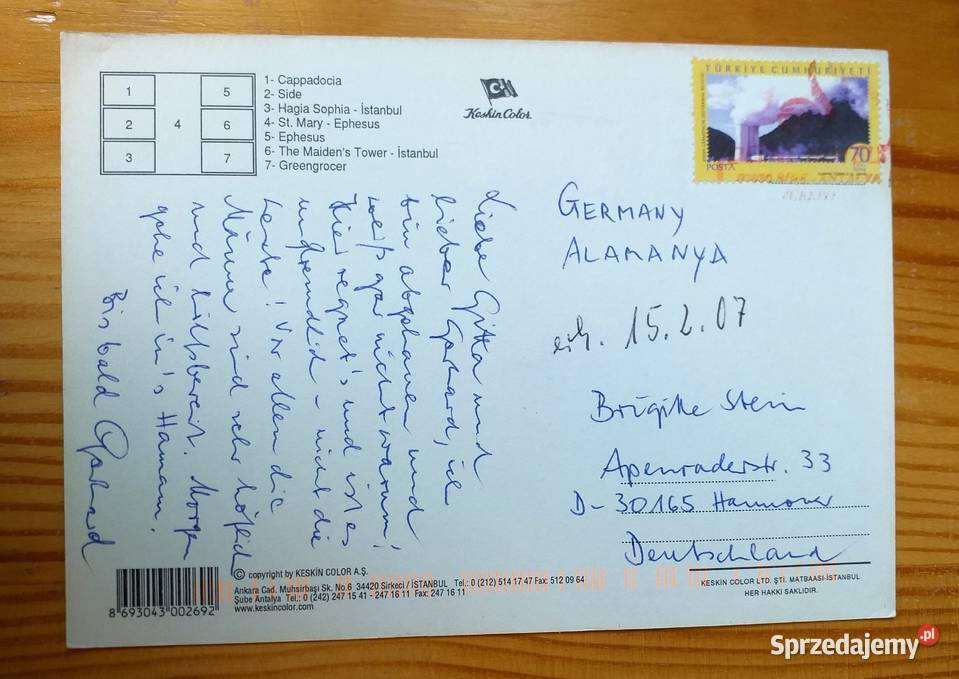 1
2
3
4
5
6
7
1- Cappadocia
2- Side
3- Hagia Sophia - İstanbul
4- St. Mary - Ephesus
5- Ephesus
6- The Maiden's Tower - İstanbul
7- Greengrocer
Keskin Color
TÜRKİYE CUMHURİYETİ
POSTA
70
GERMANY
ALAMANYA
erh. 15.2.07
Brigitte Stein
Apenraderstr. 33
D-30165 Hannover
Deutschland
Liebe Gitta und
lieber Gerhard, ich
bin abgehauen und
weiß gar nicht warum!
Hier regnet's und ist es
unfreundlich - nicht die
Leute! Vor allem die
Männer sind sehr höflich
und hilfsbereit. Morgen
gehe ich in's Hamam.
Bis bald
© copyright by KESKİN COLOR A.Ş.
Ankara Cad. Muhsirbaşı Sk. No.6 34420 Sirkeci / İSTANBUL Tel.: 0 (212) 514 17 47 Fax: 512 09 64
Şube Antalya Tel.: 0 (242) 247 15 41 - 247 16 11 Fax: 247 16 11
www.keskincolor.com
8 693043 002692
KESKİN COLOR LTD. ŞTİ. MATBAASI-İSTANBUL
HER HAKKI SAKLIDIR.
Sprzedajemy.pl